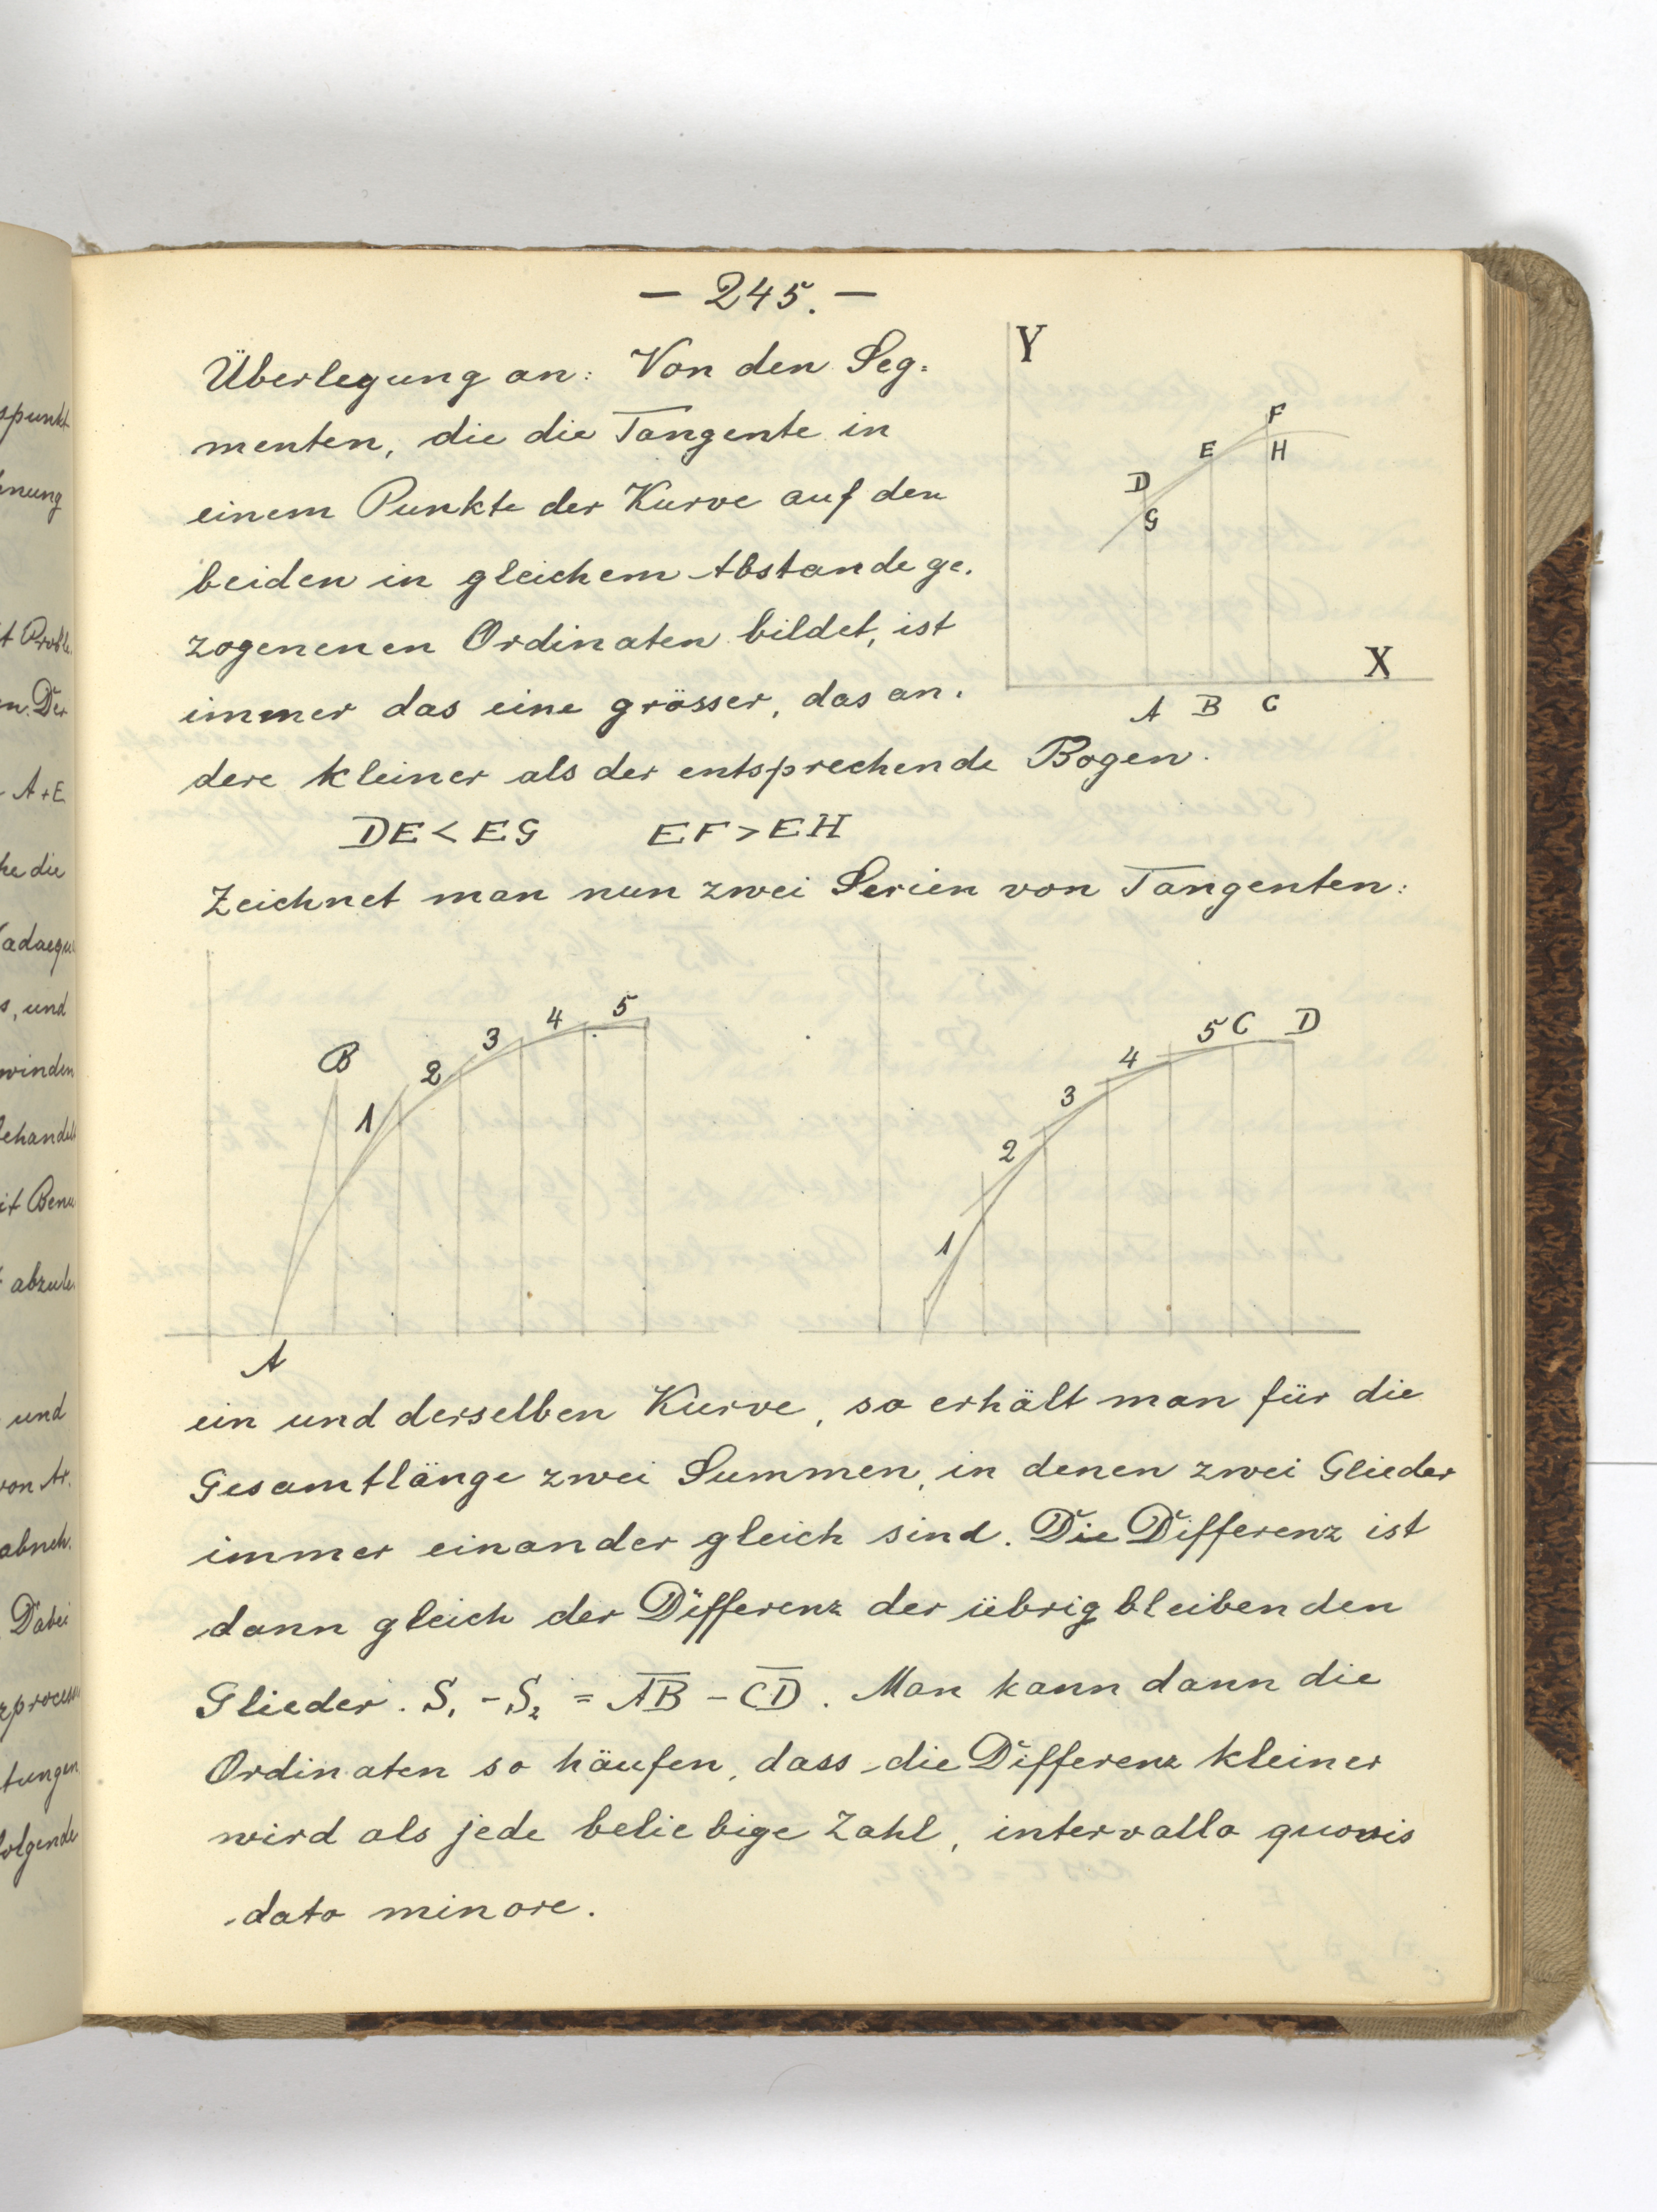 — 245. —
Überlegung an: Von den Seg-
menten, die die Tangente in
einem Punkte der Kurve auf den
beiden in gleichem Abstande ge-
zogenenen Ordinaten bildet, ist
immer das eine grösser, das an-
dere kleiner als der entsprechende Bogen.
DE < EG EF > EH
Zeichnet man nun zwei Serien von Tangenten:
Y
F
E H
D
G
X
A B C
B 1 2 3 4 5
A
1 2 3 4 5 C D
ein und derselben Kurve, so erhält man für die
Gesamtlänge zwei Summen, in denen zwei Glieder
immer einander gleich sind. Die Differenz ist
dann gleich der Differenz der übrig bleibenden
Glieder. S₁ - S₂ = A̅B̅ - C̅D̅. Man kann dann die
Ordinaten so häufen, dass die Differenz kleiner
wird als jede beliebige Zahl, intervallo quovis
dato minore.
spunkt
nung
t Probl.
n. Der
- A+E
he die
(adaequ
s, und
winden
behandel
it Benu
abzule.
und
von Ar.
abneh.
Dabei
zprocess
tungen
olgende